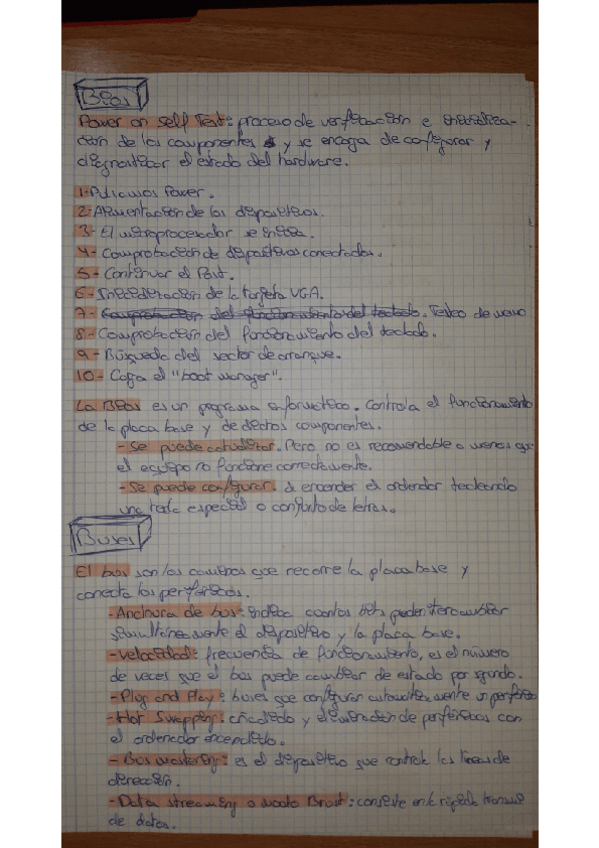 Bios
Power on Self Test: proceso de verificación e inicializa-
ción de los componentes y se encaga de configurar y
diagnosticar el estado del hardware.
1-Pulsamos Power.
2-Alimentación de los dispositivos.
3- El microprocesador se inicia.
4- Comprobación de dispositivos conectados.
5- Continuar el Post.
6- Inicialización de la tarjeta VGA.
7- Comprobación del funcionamiento del teclado. Testeo de
8- Comprobación del funcionamiento del teclado.
9- Búsqueda del sector de arranque.
10- Carga el "boot manager".
La Bios es un programa informático. Controla el funcionamiento
de la placa base y de ciertos componentes.
- Se puede actualizar. Pero no es recomendable a menos que
el equipo no funcione correctamente.
- Se puede configurar: al encender el ordenador tecleando
una tecla especial o conjunto de letras.
Buses
El bus son los caminos que recorre la placa base y
conecta los periféricos.
- Anchura de bus: indica cuantos bits pueden intercambiar
simultáneamente el dispositivo y la placa base.
- Velocidad: frecuencia de funcionamiento, es el número
de veces que el bus puede cambiar de estado por segundo.
- Plug and Play: buses que configuran automáticamente un periférico
- Hot Swapping: añadido y eliminación de periféricos con
el ordenador encendido.
- Bus mastering: es el dispositivo que controla las líneas de
dirección.
- Data streaming o modo Brust: consiste en la rápida
de datos.